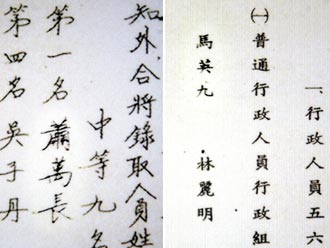 知外合將錄取人員姓
中等九名
第一名蕭萬長
第四名吳子丹
一、普通行政人員五六
㈠普通行政人員行政組
馬英九 林麗明